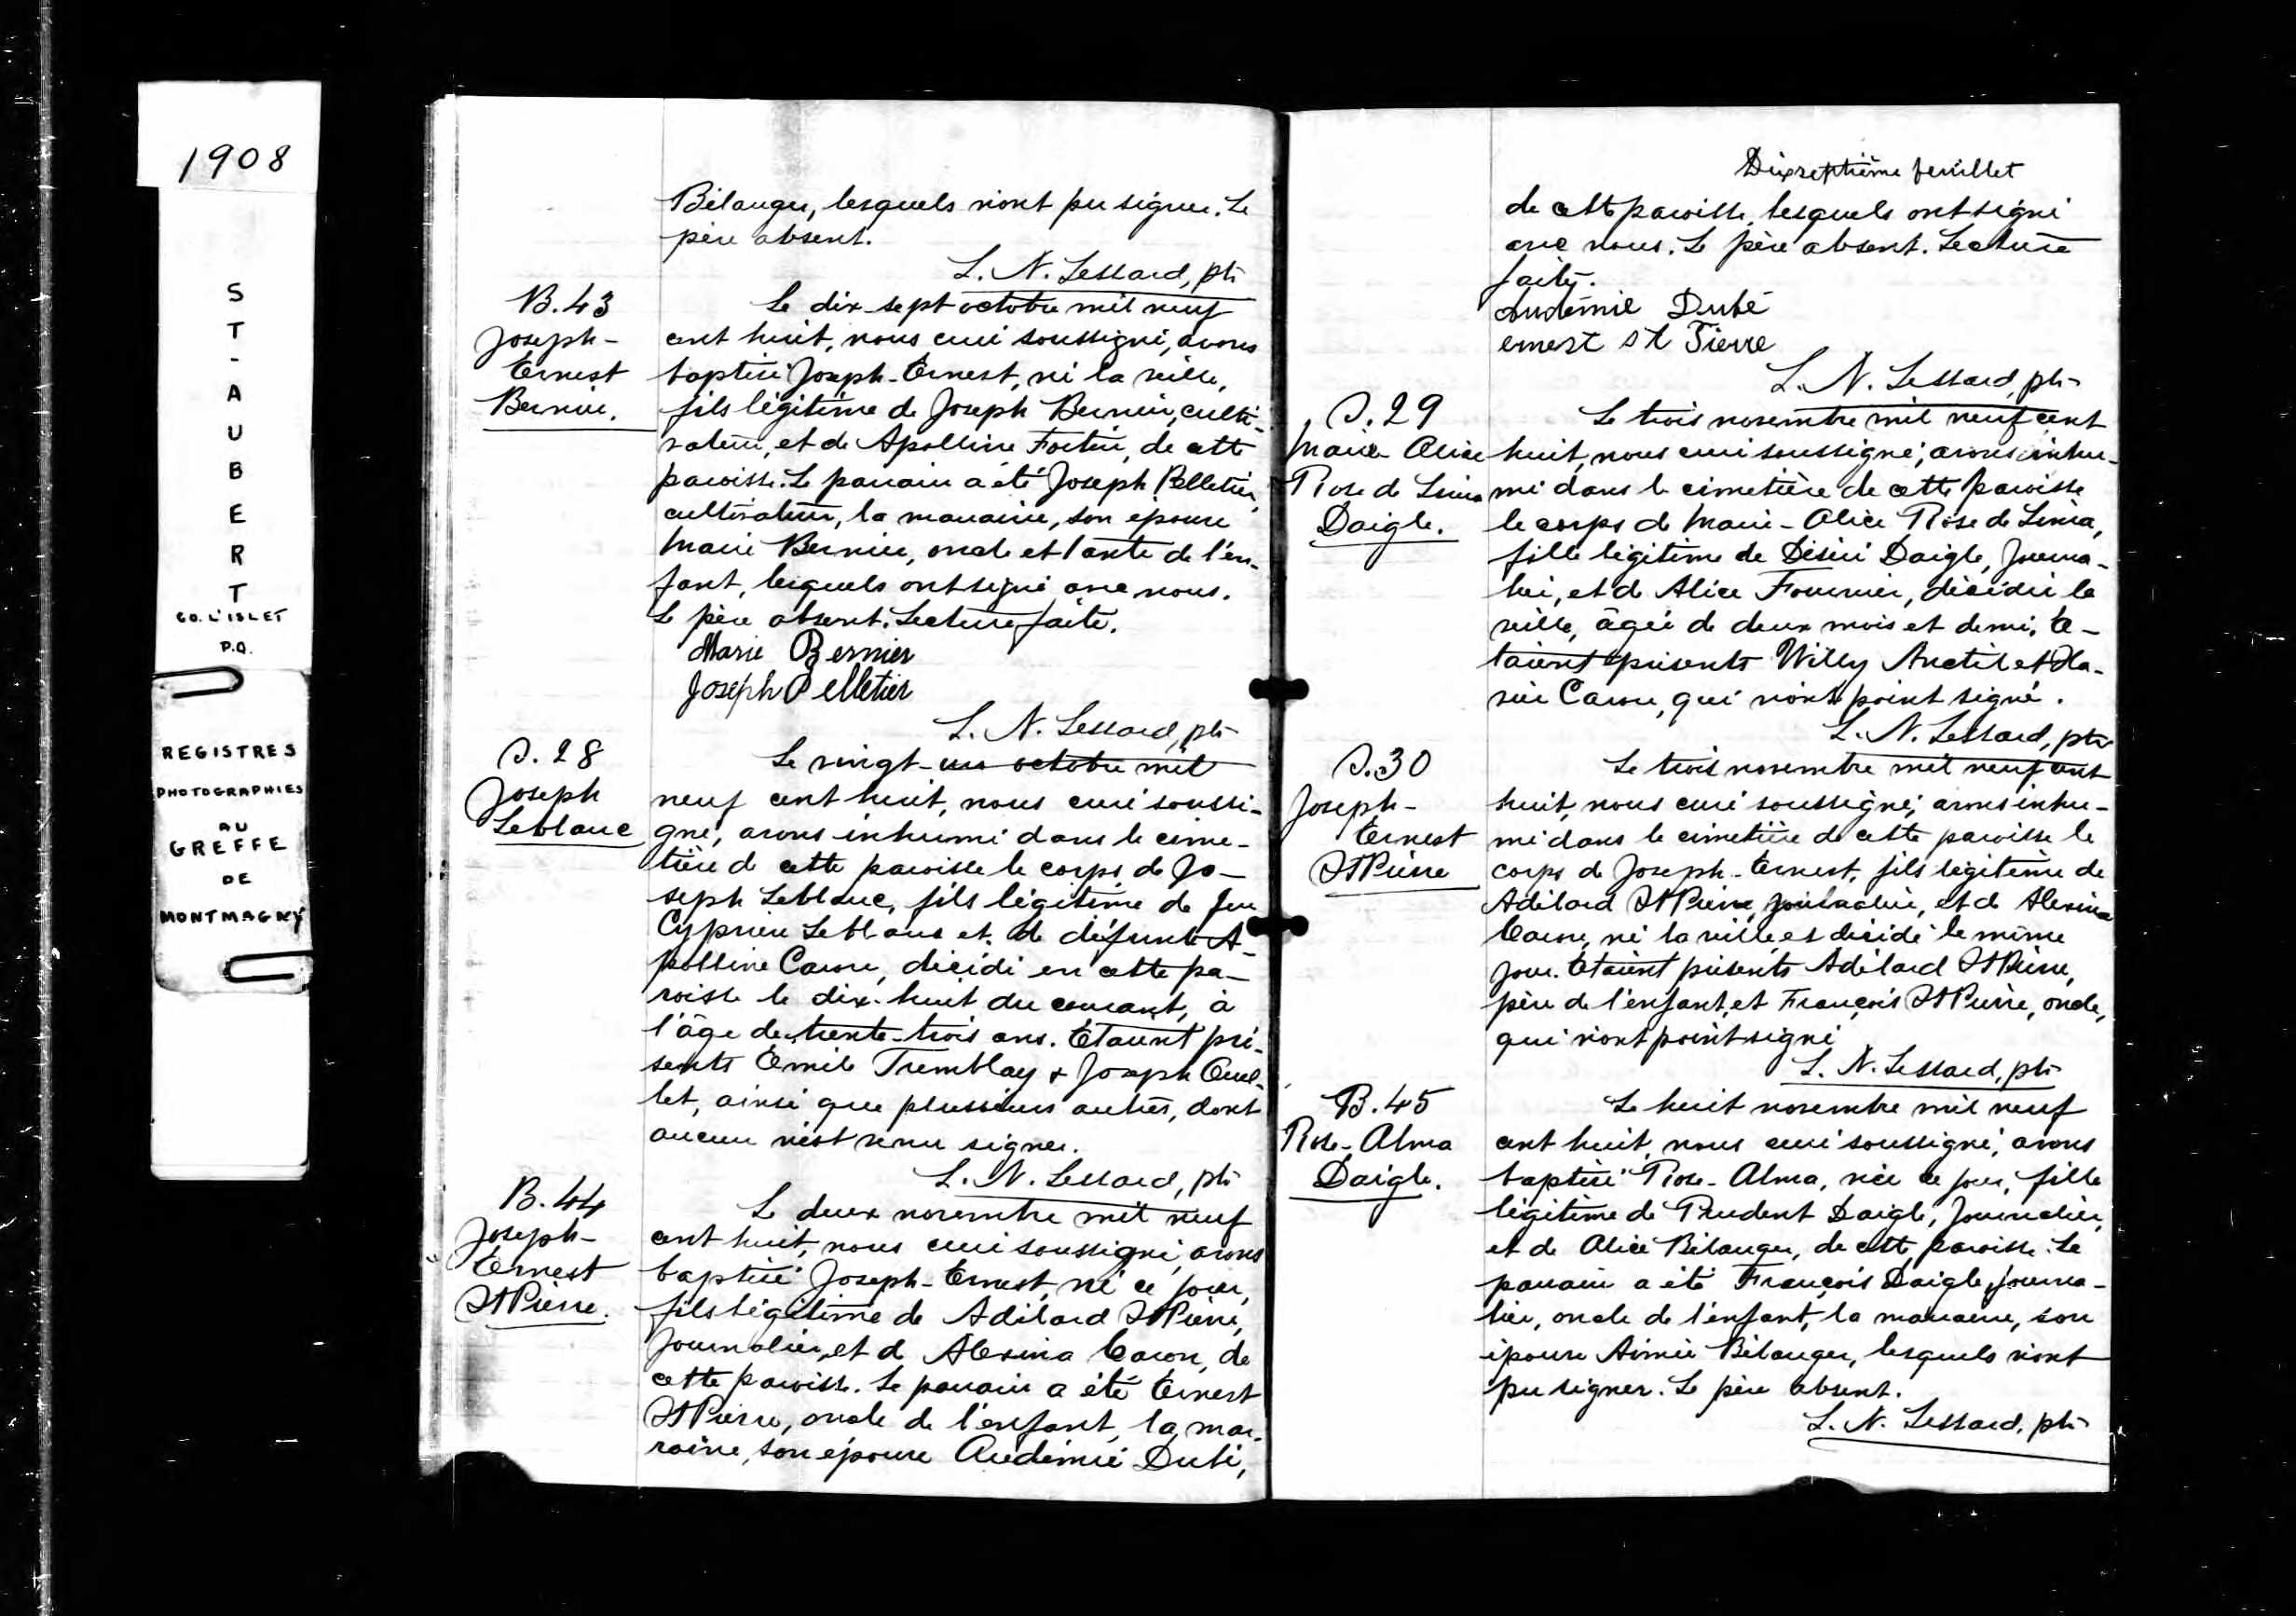 1908
ST-AUBERT
CO. L'ISLET
P.Q.
REGISTRES
PHOTOGRAPHIES
AU
GREFFE
DE
MONTMAGNY
Bélanger, lesquels n'ont pu signer. Le
père absent.
L. N. Lessard, ptr
B.43
Joseph-
Ernest
Bernier.
Le dix-sept octobre mil neuf
cent huit, nous curé soussigné, avons
baptisé Joseph-Ernest, né la veille,
fils légitime de Joseph Bernier, culti-
vateur, et de Apolline Fortin, de cette
paroisse. Le parrain a été Joseph Pelletier,
cultivateur, la marraine, son épouse
Marie Bernier, oncle et tante de l'en-
fant, lesquels ont signé avec nous.
Le père absent. Lecture faite.
Marie Bernier
Joseph Pelletier
L. N. Lessard, ptr
S.28
Joseph
Leblanc
Le vingt-un octobre mil
neuf cent huit, nous curé soussi-
gné, avons inhumé dans le cime-
tière de cette paroisse le corps de Jo-
seph Leblanc, fils légitime de feu
Cyprien Leblanc et de défunte A-
polline Caron, décédé en cette pa-
roisse le dix-huit du courant, à
l'âge de trente-trois ans. Etaient pré-
sents Emile Tremblay & Joseph Ouel-
let, ainsi que plusieurs autres, dont
aucun n'est venu signer.
L. N. Lessard, ptr
B.44
Joseph-
Ernest
St Pierre.
Le deux novembre mil neuf
cent huit, nous curé soussigné, avons
baptisé Joseph-Ernest, né ce jour,
fils légitime de Adélard St Pierre,
journalier, et de Alexina Caron, de
cette paroisse. Le parrain a été Ernest
St Pierre, oncle de l'enfant, la mar-
raine, son épouse Audémie Dubé,
Dixseptième feuillet
de cette paroisse, lesquels ont signé
avec nous. Le père absent. Lecture
faite.
Audémie Dubé
ernest st Pierre
L. N. Lessard, ptr
S.29
Marie-Alice
Rose de Lima
Daigle.
Le trois novembre mil neuf cent
huit, nous curé soussigné, avons inhu-
mé dans le cimetière de cette paroisse
le corps de Marie-Alice Rose de Lima,
fille légitime de Désiré Daigle, journa-
lier, et de Alice Fournier, décédée la
veille, âgée de deux mois et demi. E-
taient présents Willy Anctil et Xa-
vier Caron, qui n'ont point signé.
L. N. Lessard, ptr
S.30
Joseph-
Ernest
St Pierre
Le trois novembre mil neuf cent
huit, nous curé soussigné, avons inhu-
mé dans le cimetière de cette paroisse le
corps de Joseph-Ernest, fils légitime de
Adélard St Pierre, journalier, et de Alexina
Caron, né la veille, et décédé le même
jour. Etaient présents Adélard St Pierre,
père de l'enfant, et François St Pierre, oncle,
qui n'ont point signé
L. N. Lessard, ptr
B.45
Rose-Alma
Daigle.
Le huit novembre mil neuf
cent huit, nous curé soussigné, avons
baptisé Rose-Alma, née ce jour, fille
légitime de Prudent Daigle, journalier,
et de Alice Bélanger, de cette paroisse. Le
parrain a été François Daigle, journa-
lier, oncle de l'enfant, la marraine, son
épouse Aimée Bélanger, lesquels n'ont
pu signer. Le père absent.
L. N. Lessard, ptr